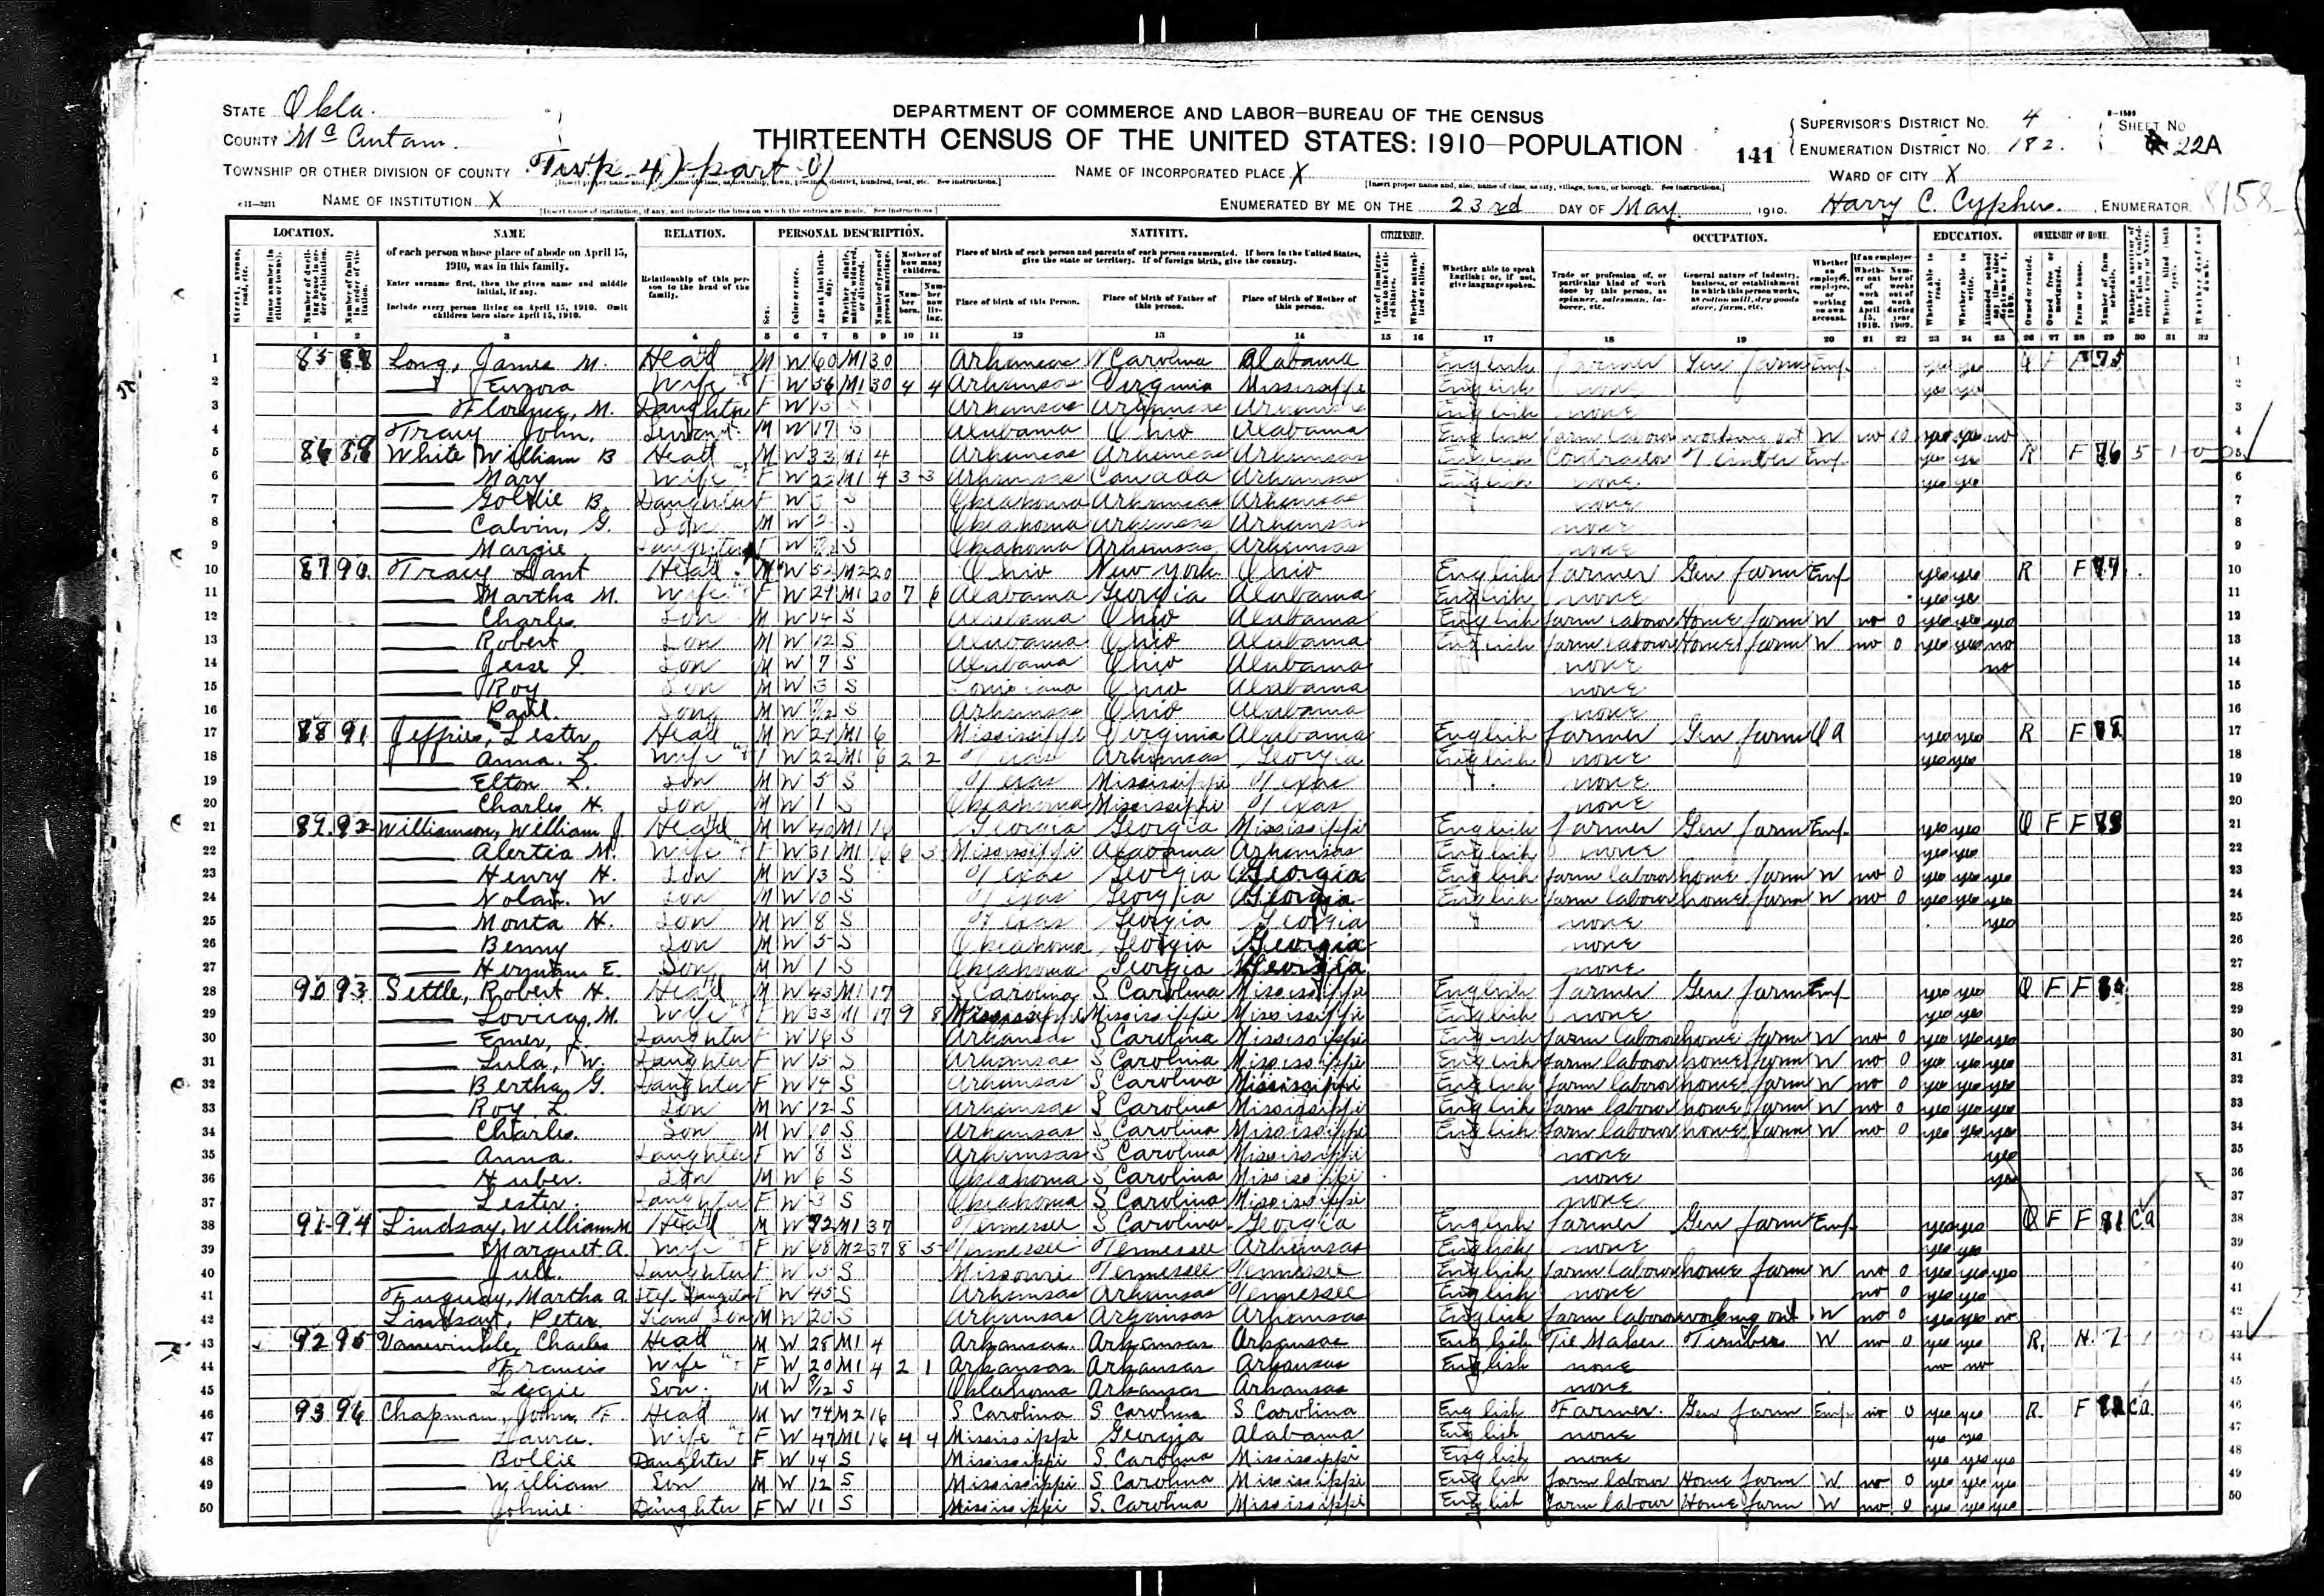 STATE Okla.
DEPARTMENT OF COMMERCE AND LABOR—BUREAU OF THE CENSUS
COUNTY McCurtain.
THIRTEENTH CENSUS OF THE UNITED STATES: 1910—POPULATION
141
SUPERVISOR'S DISTRICT No. 4
ENUMERATION DISTRICT No. 182.
SHEET No. 22A
TOWNSHIP OR OTHER DIVISION OF COUNTY Twp. 4, part of
NAME OF INCORPORATED PLACE X
WARD OF CITY X
NAME OF INSTITUTION X
ENUMERATED BY ME ON THE 23rd DAY OF May, 1910. Harry C. Cyphers, ENUMERATOR. 8158
LOCATION. NAME RELATION. PERSONAL DESCRIPTION. NATIVITY. CITIZENSHIP. OCCUPATION. EDUCATION. OWNERSHIP OF HOME.
of each person whose place of abode on April 15, 1910, was in this family.
Enter surname first, then the given name and middle initial, if any.
Include every person living on April 15, 1910. Omit children born since April 15, 1910.
Relationship of this person to the head of the family.
Place of birth of each person and parents of each person enumerated. If born in the United States, give the state or territory. If of foreign birth, give the country.
Place of birth of this Person. Place of birth of Father of this person. Place of birth of Mother of this person.
Whether able to speak English; or, if not, give language spoken.
1 2 3 4 5 6 7 8 9 10 11 12 13 14 15 16 17 18 19 20 21 22 23 24 25 26 27 28 29 30 31 32
1 85 88 Long, James M. Head M W 60 M1 30 Arkansas N Carolina Alabama English farmer Gen farm Emp yes yes O F F 75
2 Wife F W 56 M1 30 4 4 Arkansas Virginia Mississippi English none yes yes
3 Florence, M. Daughter F W 15 S Arkansas Arkansas Arkansas English none
4 Tracy John. Servant M W 17 S Alabama Ohio Alabama English farm labour working out W no 10 yes yes no
5 86 89 White William B Head M W 33 M1 4 Arkansas Arkansas Arkansas English Contractor Timber Emp yes yes R F 76
6 Mary Wife F W 22 M1 4 3 3 Arkansas Canada Arkansas English none yes yes
7 Goldie B. Daughter F W 3 S Oklahoma Arkansas Arkansas none
8 Calvin, G. Son M W 2 S Oklahoma Arkansas Arkansas none
9 Margie Daughter F W S Oklahoma Arkansas Arkansas none
10 87 90 Tracy Head M W 52 M2 20 Ohio New York Ohio English farmer Gen farm Emp yes yes R F 77
11 Martha M. Wife F W M1 20 7 6 Alabama Georgia Alabama English none yes yes
12 Charles Son M W 14 S Alabama Ohio Alabama English farm labour Home farm W no 0 yes yes yes
13 Robert Son M W 12 S Alabama Ohio Alabama English farm labour Home farm W no 0 yes yes no
14 Jesse J. Son M W 7 S Alabama Ohio Alabama none no
15 Roy Son M W 3 S Louisiana Ohio Alabama none
16 Paul. Son M W S Arkansas Ohio Alabama none
17 88 91 Jeffries, Lester Head M W 27 M1 6 Mississippi Virginia Alabama English farmer Gen farm OA yes yes R F 78
18 Anna. L. Wife F W 22 M1 6 2 2 Texas Arkansas Georgia English none yes yes
19 Elton L. Son M W 5 S Texas Mississippi Texas none
20 Charles H. Son M W 1 S Oklahoma Mississippi Texas none
21 89 92 Williamson, William J. Head M W 40 M1 16 Georgia Georgia Mississippi English farmer Gen farm Emp yes yes O F F 79
22 Alertia M. Wife F W 31 M1 16 6 5 Mississippi Alabama Arkansas English none yes yes
23 Henry H. Son M W 13 S Texas Georgia Georgia English farm labour home farm W no 0 yes yes yes
24 Nolan. W Son M W 10 S Texas Georgia Georgia English farm labour home farm W no 0 yes yes yes
25 Monta H. Son M W 8 S Texas Georgia Georgia none yes
26 Benny Son M W 5 S Oklahoma Georgia Georgia none
27 Herman E. Son M W 1 S Oklahoma Georgia Georgia none
28 90 93 Settle, Robert H. Head M W 43 M1 17 S Carolina S Carolina Mississippi English farmer Gen farm Emp yes yes O F F 80
29 M. Wife F W 33 M1 17 9 8 Mississippi Mississippi Mississippi English none yes yes
30 Daughter F W 16 S Arkansas S Carolina Mississippi English farm labour home farm W no 0 yes yes yes
31 Lula, W. Daughter F W 15 S Arkansas S Carolina Mississippi English farm labour home farm W no 0 yes yes yes
32 Bertha, G. Daughter F W 14 S Arkansas S Carolina Mississippi English farm labour home farm W no 0 yes yes yes
33 Roy. L. Son M W 12 S Arkansas S Carolina Mississippi English farm labour home farm W no 0 yes yes yes
34 Charles. Son M W 10 S Arkansas S Carolina Mississippi English farm labour home farm W no 0 yes yes yes
35 Anna. Daughter F W 8 S Arkansas S Carolina Mississippi none yes
36 Huber. Son M W 6 S Oklahoma S Carolina Mississippi none yes
37 Lester. Daughter F W 3 S Oklahoma S Carolina Mississippi none
38 91 94 Lindsay, William M Head M W 72 M1 37 Tennessee S Carolina Georgia English farmer Gen farm Emp yes yes O F F 81 CA
39 Marguet. A. Wife F W 68 M2 37 8 5 Tennessee Tennessee Arkansas English none yes yes
40 Daughter F W 15 S Missouri Tennessee Tennessee English farm labour home farm W no 0 yes yes yes
41 Fuguay, Martha A. Step Daughter F W 45 S Arkansas Arkansas Tennessee English none no 0 yes yes
42 Lindsay, Peter. Grand Son M W 20 S Arkansas Arkansas Arkansas English farm labour working out W no 0 yes yes no
43 92 95 Vanwinkle, Charles Head M W 28 M1 4 Arkansas. Arkansas Arkansas English Tie Maker Timber W no 0 yes yes R. H.
44 Francis Wife F W 20 M1 4 2 1 Arkansas Arkansas Arkansas English none no no
45 Son. M W 8/12 S Oklahoma Arkansas Arkansas none
46 93 96 Chapman, John, F. Head M W 74 M2 16 S Carolina S Carolina S Carolina English Farmer. Gen farm Emp no 0 yes yes R. F 82 CA
47 Laura. Wife F W 47 M1 16 4 4 Mississippi Georgia Alabama English none yes yes
48 Bollie Daughter F W 14 S Mississippi S Carolina Mississippi English none yes yes yes
49 William Son M W 12 S Mississippi S Carolina Mississippi English farm labour Home farm W. no 0 yes yes yes
50 Johnie Daughter F W 11 S Mississippi S. Carolina Mississippi English farm labour Home farm W no 0 yes yes yes